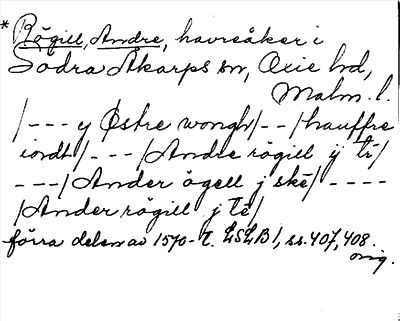 * Rögill, Andre, havreåker i
Södra Åkarps sn, Oxie hd,
Malm. l.
/--- y Østre wongh/--/hauffre
iordt/---/Andre rögill ij tē/
---/Ander ögell j skē/----
/Ander rögill j tē/
förra delen av 1570-t. LSLB 1, ss. 407, 408.
orig.